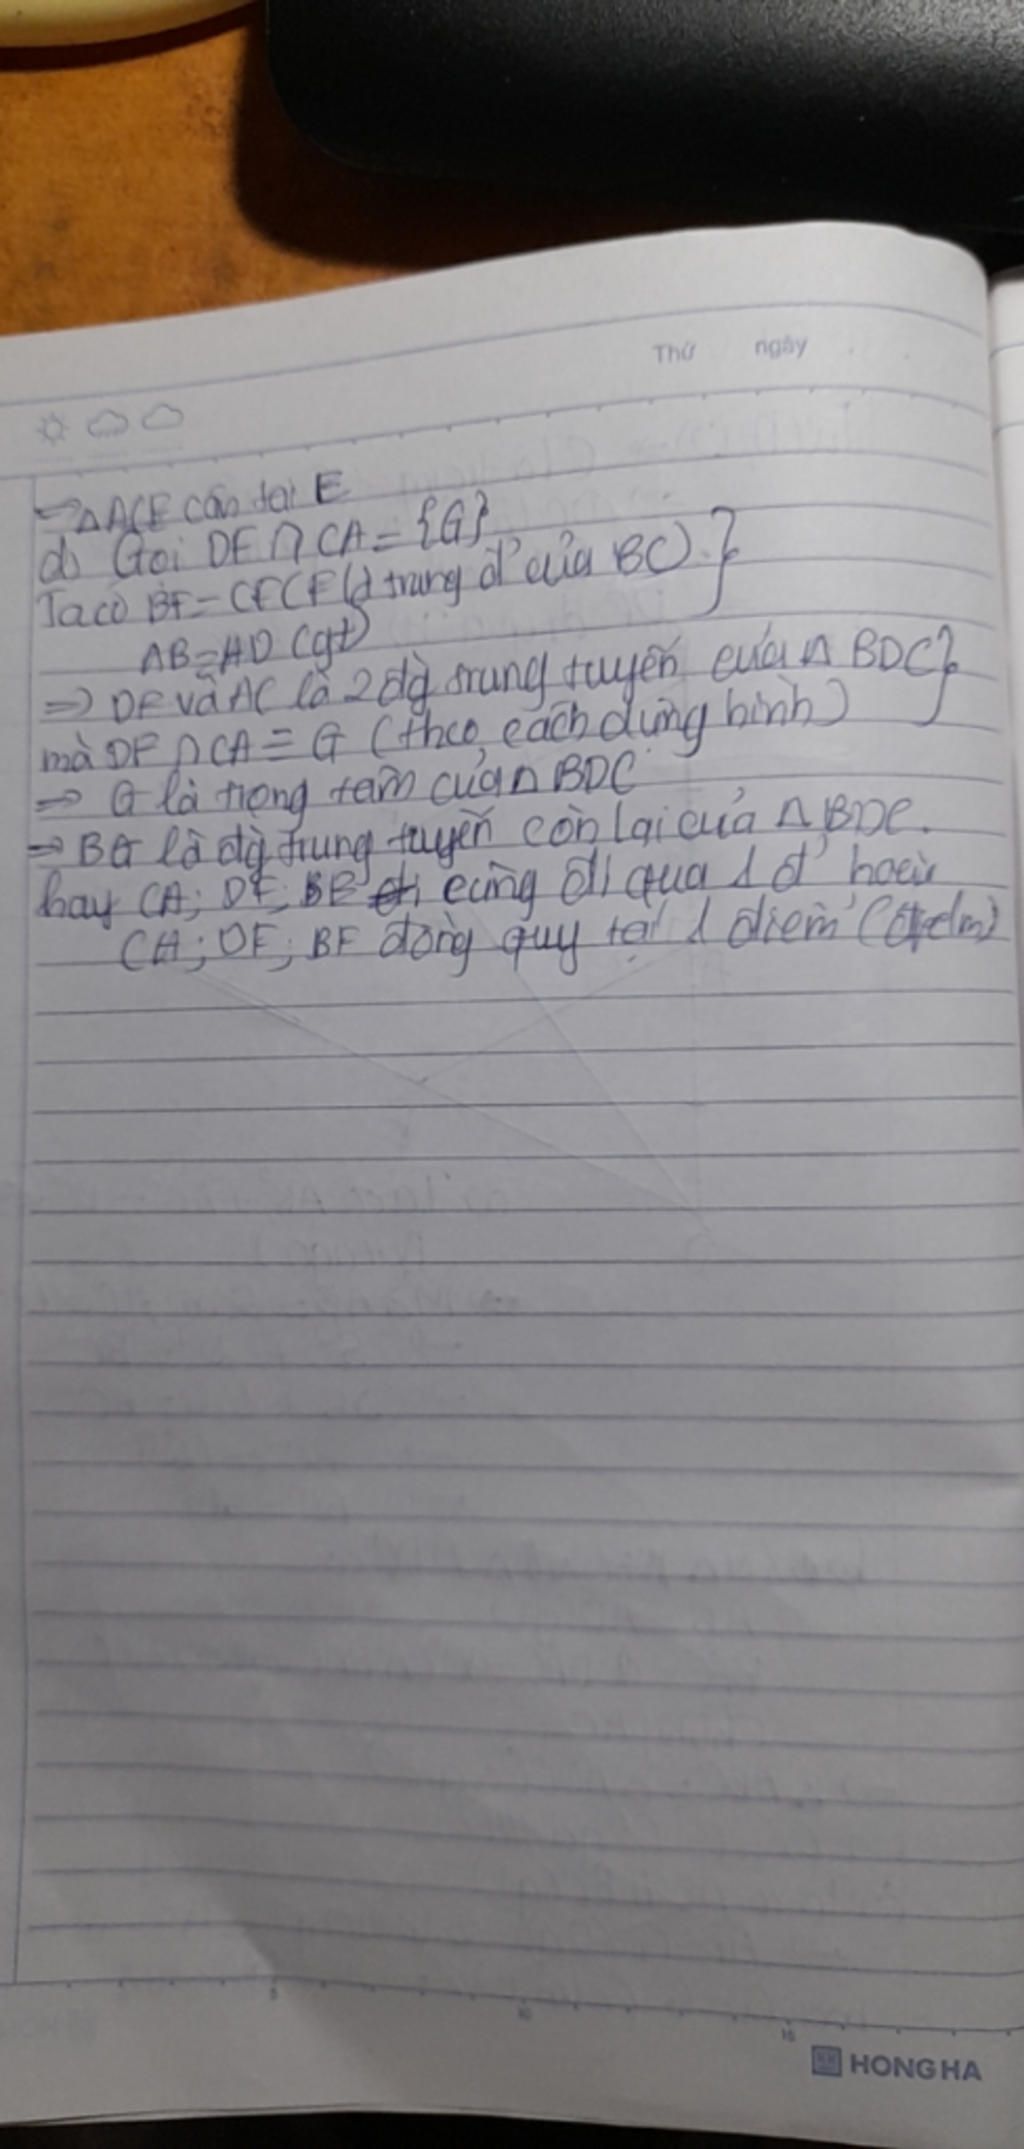 Thứ ngày
⇒ △ACE cân tại E
d) Gọi DF ∩ CA = {G}
Ta có BF = CF (F là trung đ' của BC) }
AB = AD (gt)
⇒ DF và AC là 2 đg trung tuyến của △ BDC }
mà DF ∩ CA = G (theo cách dựng hình)
⇒ G là trọng tâm của △ BDC
⇒ BG là đg trung tuyến còn lại của △ BDC.
hay CA; DF; BE cùng đi qua 1 đ' hoặc
CA; DF; BF đồng quy tại 1 điểm (đpcm)
5 10 15
HONG HA